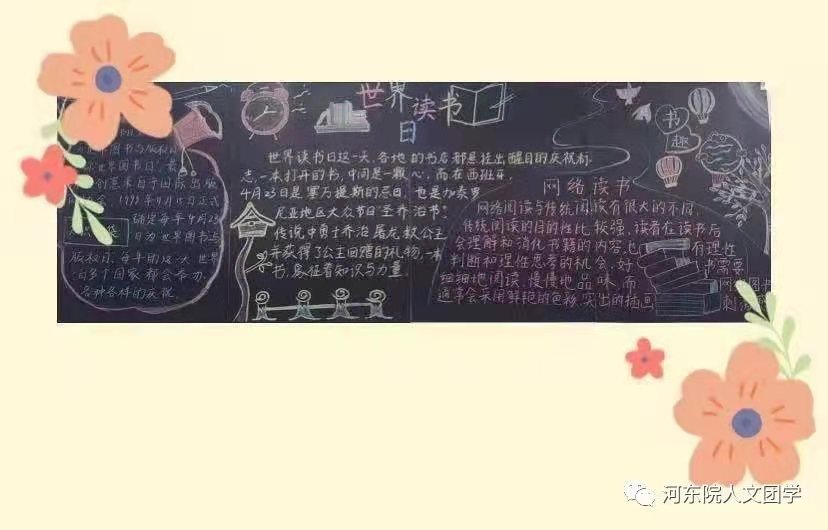 世界读书
日
世界图书与版权日
世界图书日
创意来自于国际出版
1995年11月15日正式
确定每年4月23
日为世界图书与
版权日,每年的这一天,世界
100多个国家都会举办
各种各样的庆祝
世界读书日这一天,各地的书店都悬挂出醒目的庆祝标
志,一本打开的书,中间是一颗心,而在西班牙,
4月23日是塞万提斯的忌日,也是加泰罗
尼亚地区大众节日"圣乔治节"
传说中勇士乔治屠龙救公主
并获得了公主回赠的礼物,一本
书,象征着知识与力量
书
趣
网络读书
网络阅读与传统阅读有很大的不同,
传统阅读的目的性比较强,读者在读书后
会理解和消化书籍的内容,也 有理性
判断和理性思考的机会,好 需要
细细地阅读,慢慢地品味,而 网络图书
通常会采用鲜艳的色彩,突出的插画 刺激
河东院人文团学